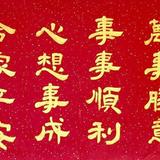 萬事勝意
事事順利
心想事成
家平安